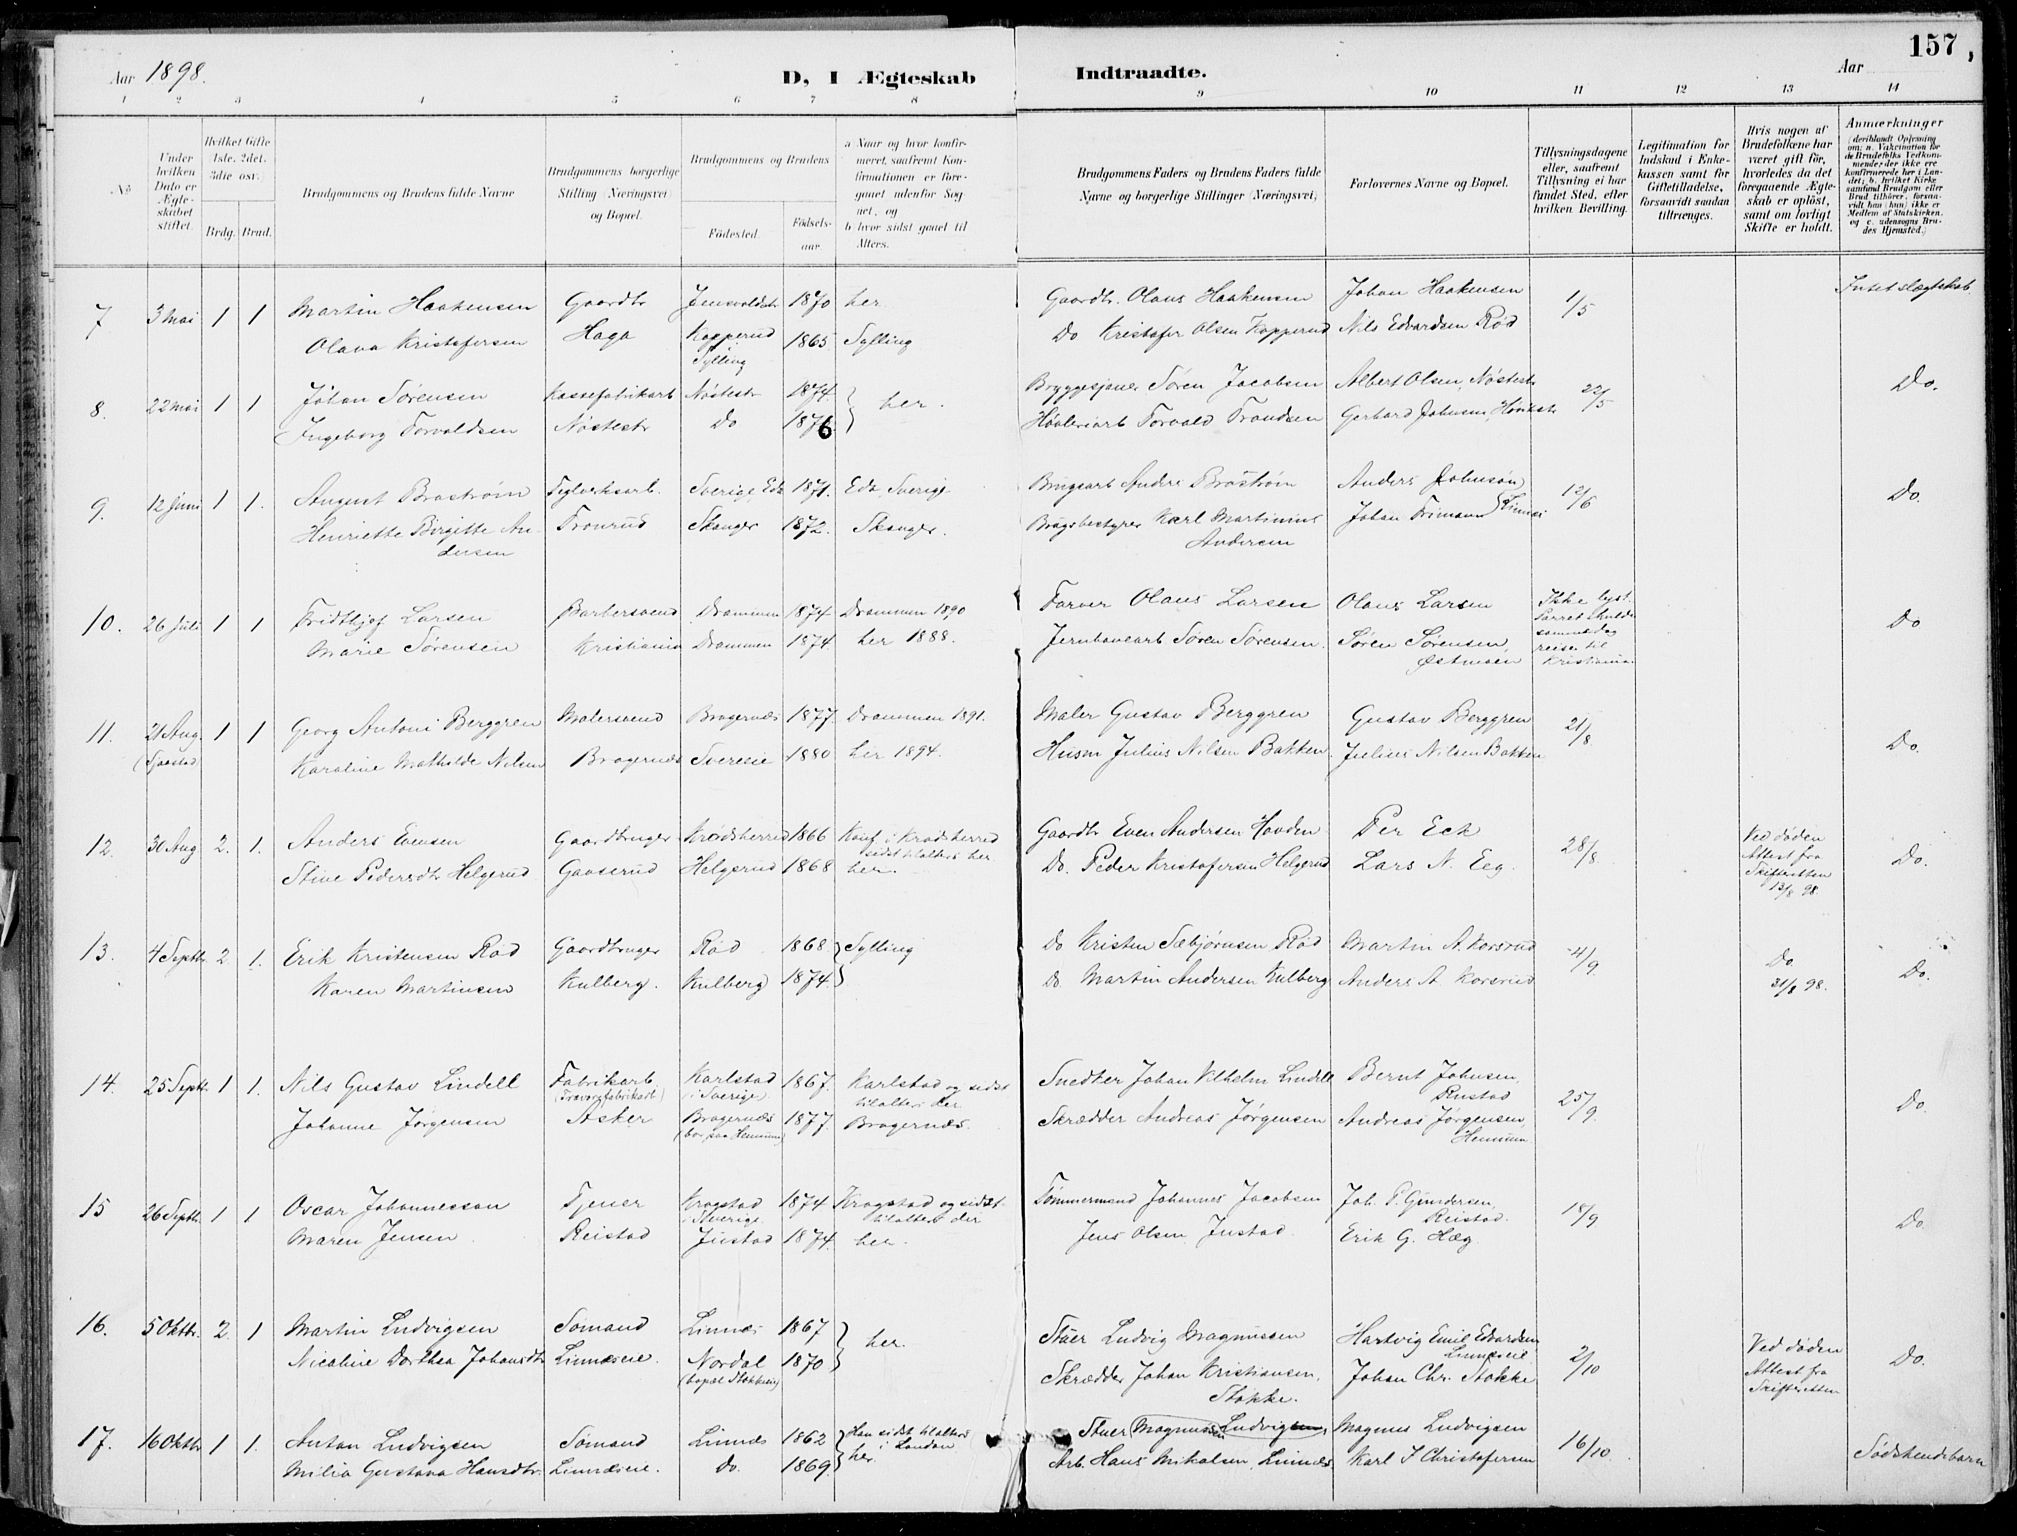 157
Aar 1898.
D, I Ægteskab Indtraadte.
Aar
1 2 3 4 5 6 7 8 9 10 11 12 13 14
No
Under hvilken Dato er Ægteskabet stiftet.
Hvilket Gifte 1ste. 2det. 3die osv.
Brdg. Brud.
Brudgommens og Brudens fulde Navne
Brudgommens borgerlige Stilling (Næringsvei) og Bopæl.
Brudgommens og Brudens
Fødested.
Fødselsaar.
a Naar og hvor konfirmeret, saafremt Konfirmationen er foregaaet udenfor Sognet, og
b hvor sidst gaaet til Alters.
Brudgommens Faders og Brudens Faders fulde Navne og borgerlige Stillinger (Næringsvei)
Forlovernes Navne og Bopæl.
Tillysningsdagene eller, saafremt Tillysning ei har fundet Sted, efter hvilken Bevilling.
Legitimation for Indskud i Enkekassen samt for Giftetilladelse, forsaavidt saadan tiltrænges.
Hvis nogen af Brudefolkene har været gift før, hvorledes da det foregaaende Ægteskab er opløst, samt om lovligt Skifte er holdt.
Anmærkninger
(deriblandt Oplysning om: a. Vakcination for de Brudefolks Vedkommende, der ikke ere konfirmerede her i Landet; b. hvilket Kirkesamfund Brudgom eller Brud tilhører, forsaavidt han (hun) ikke er Medlem af Statskirken, og c. udensogns Brudes Hjemsted.)
7 3 Mai 1 1 Martin Haakensen Gaardbr 1870 her Gaardbr. Olaus Haakensen Johan Haakensen 1/5 Intet slægtskab
Olava Kristofersen Haga Kopperud i Sylling 1865 Sylling Do Kristofer Olsen Kopperud Nils Edvardsen Rød
8. 22 Mai 1 1 Johan Sørensen Kassefabrikarb Nøstestr 1874 her. Bryggesjouer Søren Jacobsen Albert Olsen, Nøstestr 22/5 Do.
Ingeborg Torvaldsen Nøstestr Do 1876 Høvleriarb Torvald Trondsen Gerhard Johnsen
9. 12 Juni 1 1. August Broström Teglverksarb. Sverige Eda 1871. Eda, Sverige Brugsarb Andre Broström Anders Johnson 12/6 Do
Henriette Birgitte Andersen Tronrud Skanger 1872. Skanger. Brugsbestyrer Karl Martinius Andersen Johan Frimann
10. 26 Juli 1 1 Fridthjof Larsen Barbersvend Drammen 1874 Drammen 1890 Farver Olaus Larsen Olaus Larsen Ikke lyst. Parret skulde samme dag reise til Kristiania. Do
Marie Sørensen Kristiania Drammen 1874 her 1888. Jernbanearb Søren Sørensen. Søren Sørensen, Østmoen
11. 21 Aug. 1 1 Georg Antoni Berggren Malersvend Bragernæs 1877 Drammen 1891. Maler Gustav Berggren Gustav Berggren 21/8 Do.
(Sjaastad) Karoline Mathilde Nilsen Bragernæs 1880 her 1894. Husm Julius Nilsen Bakken. Julius Nilsen Bakken
12. 30 Aug 2. 1. Anders Evensen Gaardbruger Krødsherred 1866 Konf. i Krødsherred sidst tilalters her Gaardbr Even Andersen Hovden Per Eck 28/8 Ved døden Attest fra Skifteretten 13/8 98. Do.
Stine Pedersdtr Helgerud Gaaserud Helgerud 1868 her. Do. Peder Kristofersen Helgerud Lars N. Eeg.
13. 4 Septbr. 2 1. Erik Kristensen Rød Gaardbruger Rød 1868 Sylling Do Kristen Sæbjørnsen Rød Martin A. Korsrud 4/9 Do 31/8 98. Do.
Karen Martinsen Kulberg. Kulberg 1874. Do. Martin Andersen Kulberg Anders A Korsrud
14. 25 Septbr. 1 1. Nils Gustav Lindell Fabrikarb Karlstad i Sverige 1867. Karlstad og sidst tilalters der Snedker Johan Vilhelm Lindell Bernt Johnsen, Rustad 25/9 Do.
Johanne Jørgensen Asker Bragernæs (bor paa Hennum) 1877. Bragernæs. Skrædder Andreas Jørgensen Andreas Jørgensen, Hennum
15 26 Septbr. 1 1 Oscar Johannesson Tjener Krogstad i Sverige 1874 Krogstad og sidst tilalters der Tømmermand Johannes Jacobsen Joh. P. Gundersen, Reistad. 18/9 Do.
Maren Jensen Reistad Justad 1874. her. Jens Olsen Justad. Erik G. Hæg.
16. 5 Oktbr. 2. 1 Martin Ludvigsen Sømand Linnæs 1867 her. Stuer Ludvig Magnussen Hartvig Emil Edvardsen Linnæseie 2/10 Ved døden Attest fra Skifteretten Do.
Nicoline Dorthea Johansdtr Linnæseie. Nordal 1870 Skrædder Johan Kristiansen, Stokke. Johan Chr. Stokke
17. 16 Oktbr 1 1. Anton Ludvigsen Sømand Linnæs 1862 Han sidst tilalters i London Stuer Magnussen Ludvigsen Magnus Ludvigsen 16/10. Sødskendebarn
Milia Gustava Hansdtr. Linnæseie. Do. 1869 her. Arb. Hans Mikalsen, Linnæs Karl J Christofersen